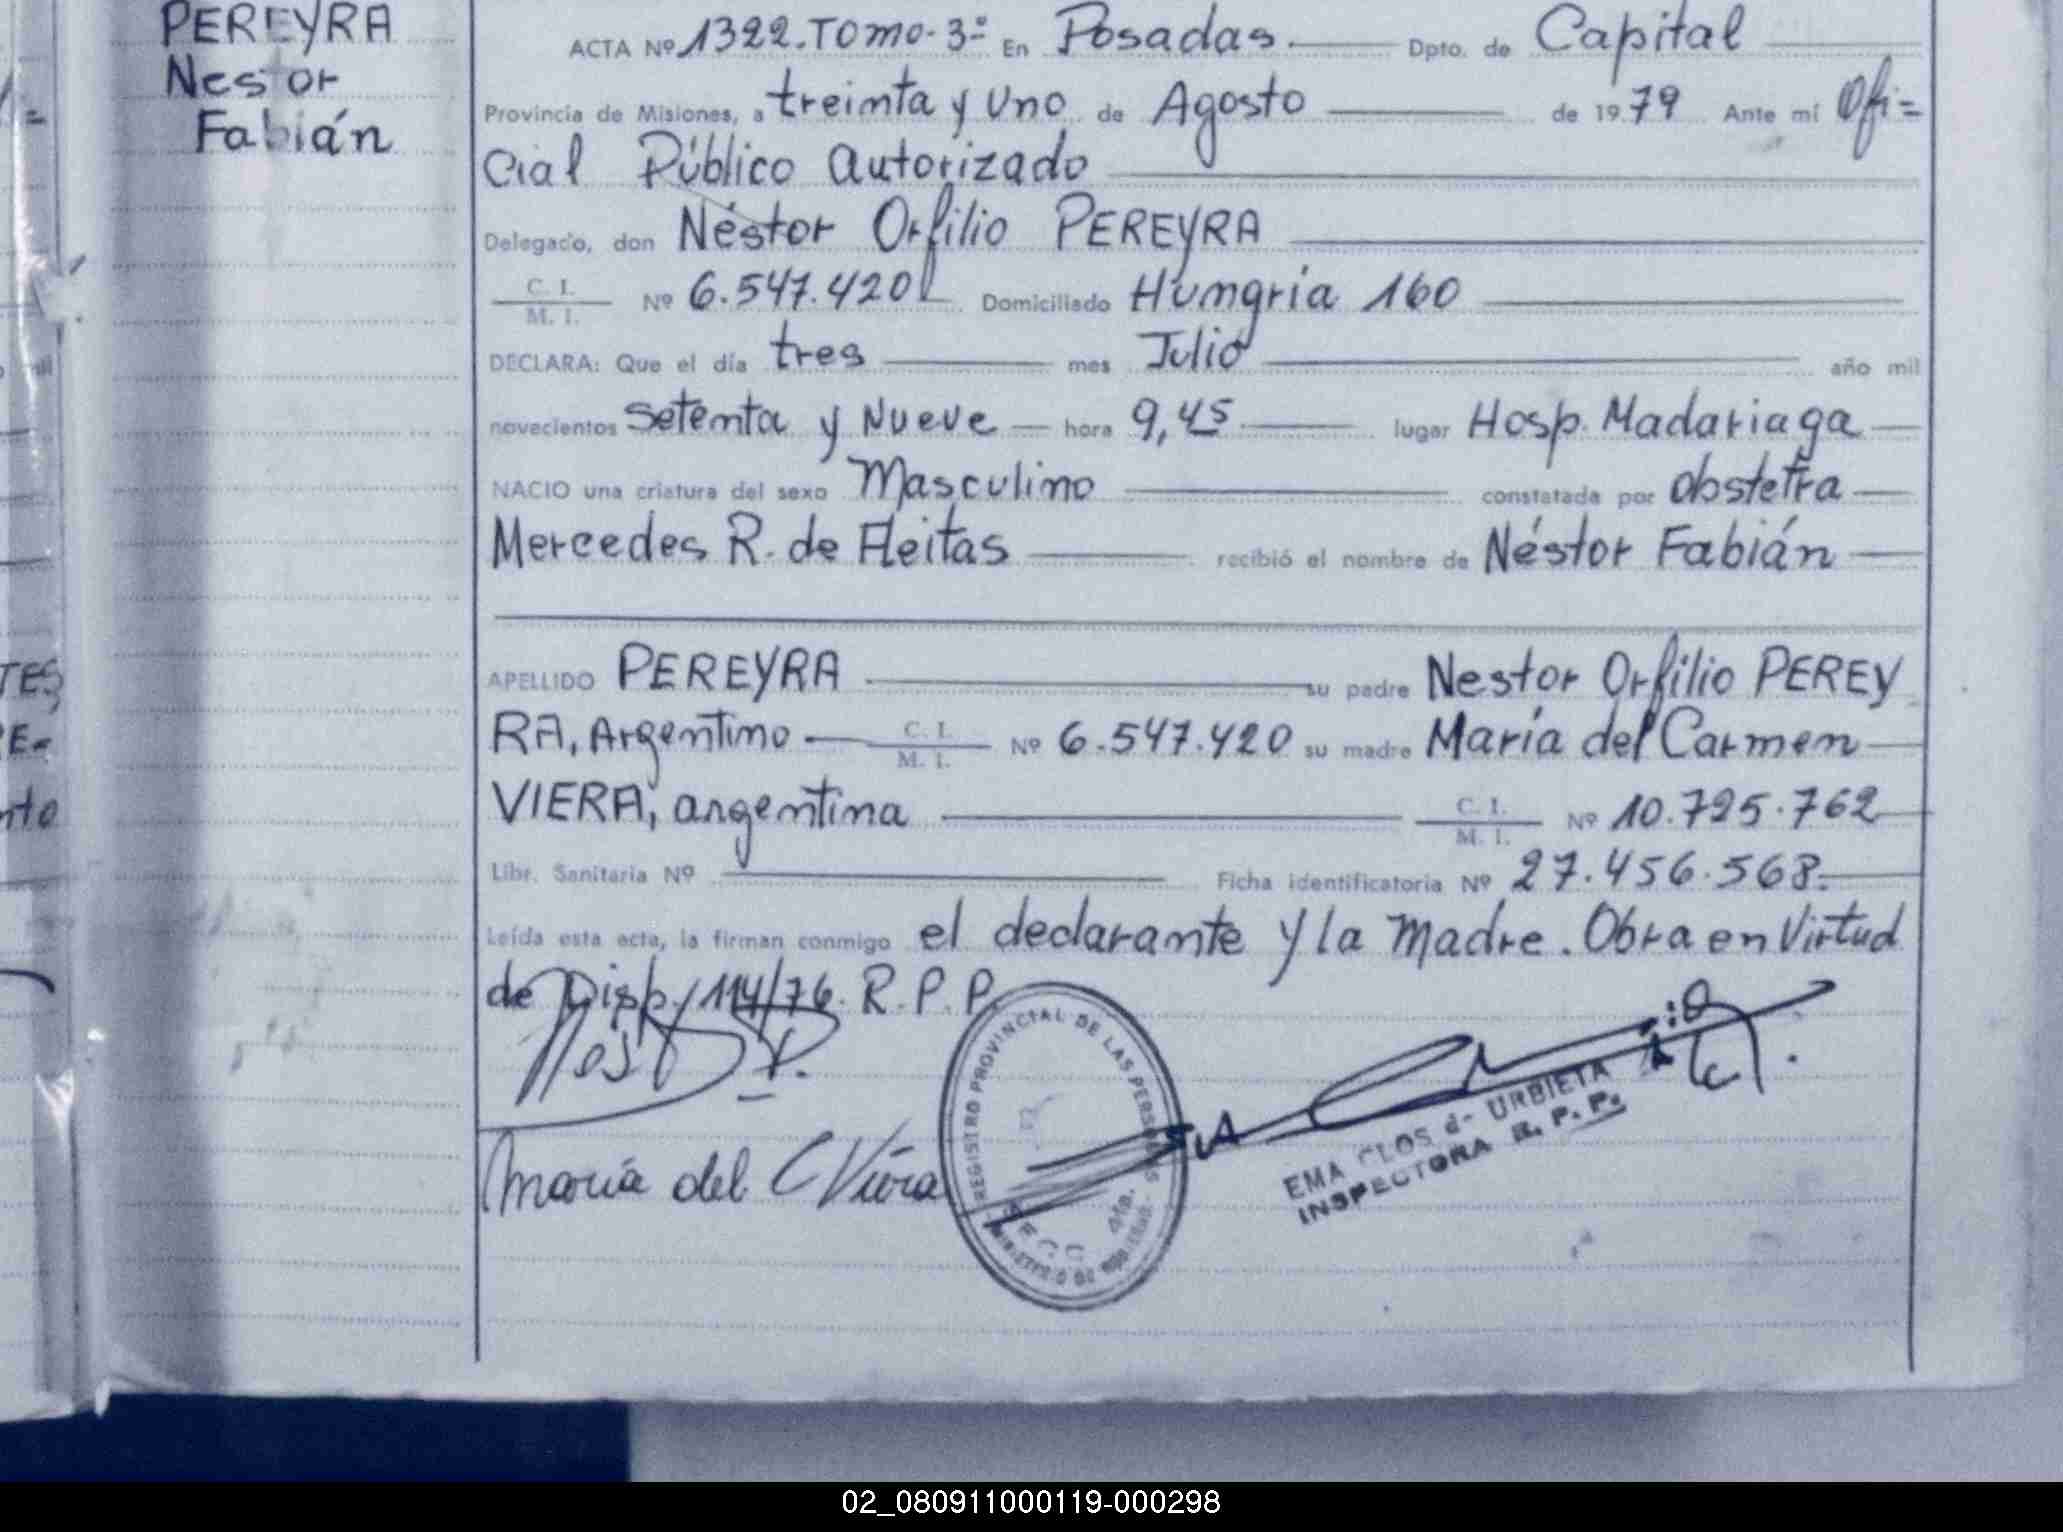 PEREYRA
Nestor
Fabián
ACTA Nº 1322. Tomo. 3º En Posadas Dpto. de Capital
Provincia de Misiones, a treinta y Uno de Agosto de 1979 Ante mí Ofi=
cial Público Autorizado
Delegado, don Néstor Orfilio PEREYRA
C. I.
M. I. Nº 6.547.420 Domiciliado Hungría 160
DECLARA: Que el día tres mes Julio año mil
novecientos Setenta y Nueve hora 9,45 lugar Hosp. Madariaga
NACIO una criatura del sexo Masculino constatada por obstetra
Mercedes R. de Fleitas recibió el nombre de Néstor Fabián
APELLIDO PEREYRA su padre Nestor Orfilio PEREY
RA, Argentino C. I. M. I. Nº 6.547.420 su madre María del Carmen
VIERA, argentina C. I. M. I. Nº 10.725.762
Libr. Sanitaria Nº Ficha identificatoria Nº 27.456.568.
Leída esta acta, la firman conmigo el declarante y la Madre. Obra en Virtud
de Disp. 114/76. R.P.P.
María del C Viera
REGISTRO PROVINCIAL DE LAS PERSONAS
EMA CLOS d- URBIETA
INSPECTORA R. P. P.
TES
RE-
nto
02_080911000119-000298